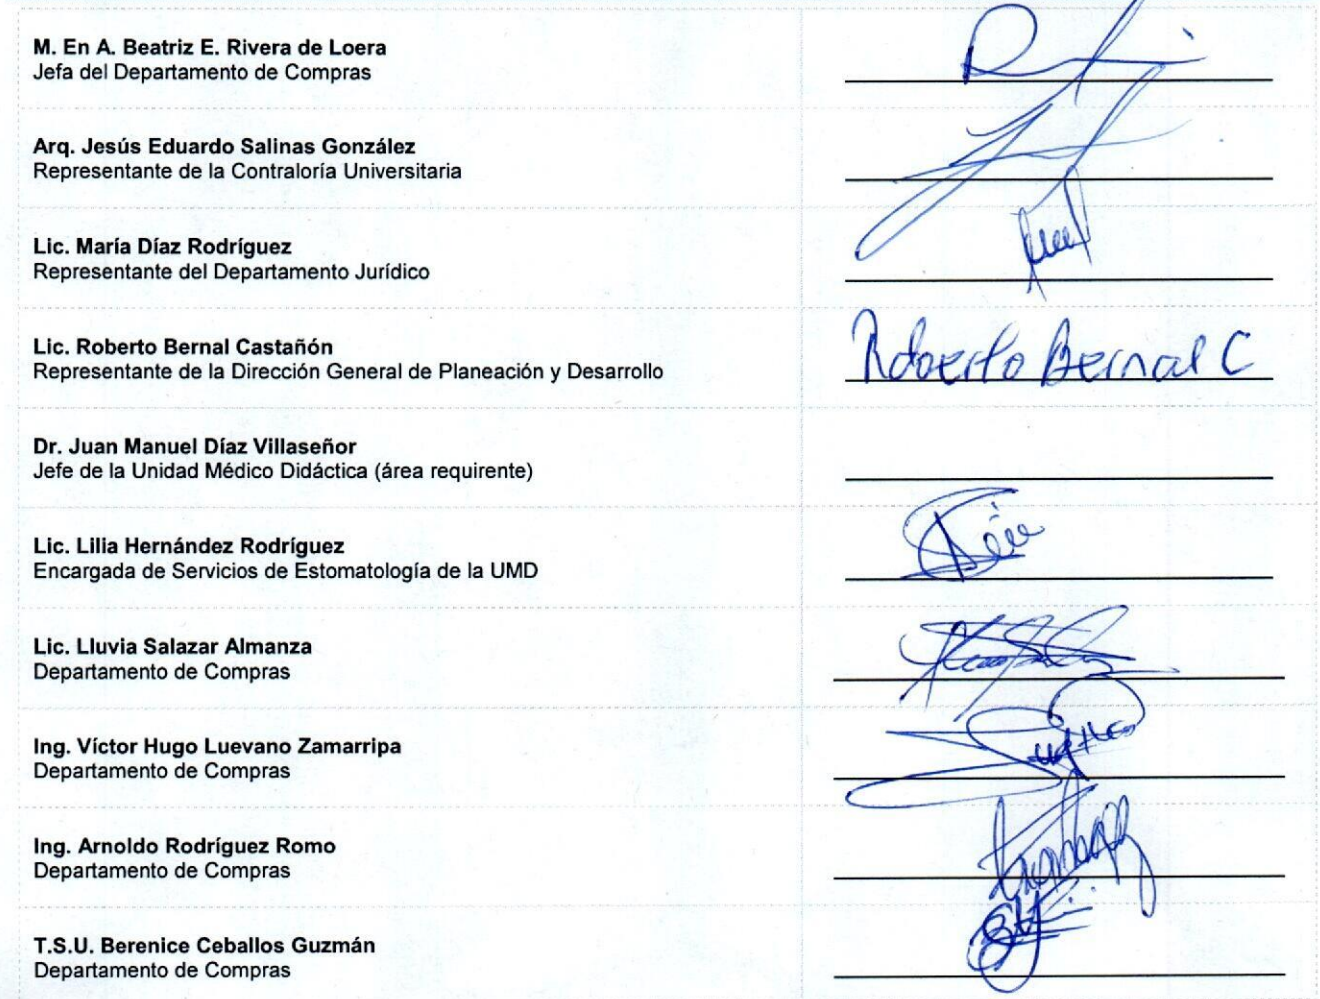 M. En A. Beatriz E. Rivera de Loera
Jefa del Departamento de Compras
Arq. Jesús Eduardo Salinas González
Representante de la Contraloría Universitaria
Lic. María Díaz Rodríguez
Representante del Departamento Jurídico
Lic. Roberto Bernal Castañón
Representante de la Dirección General de Planeación y Desarrollo
Roberto Bernal C
Dr. Juan Manuel Díaz Villaseñor
Jefe de la Unidad Médico Didáctica (área requirente)
Lic. Lilia Hernández Rodríguez
Encargada de Servicios de Estomatología de la UMD
Lic. Lluvia Salazar Almanza
Departamento de Compras
Ing. Víctor Hugo Luevano Zamarripa
Departamento de Compras
Ing. Arnoldo Rodríguez Romo
Departamento de Compras
T.S.U. Berenice Ceballos Guzmán
Departamento de Compras